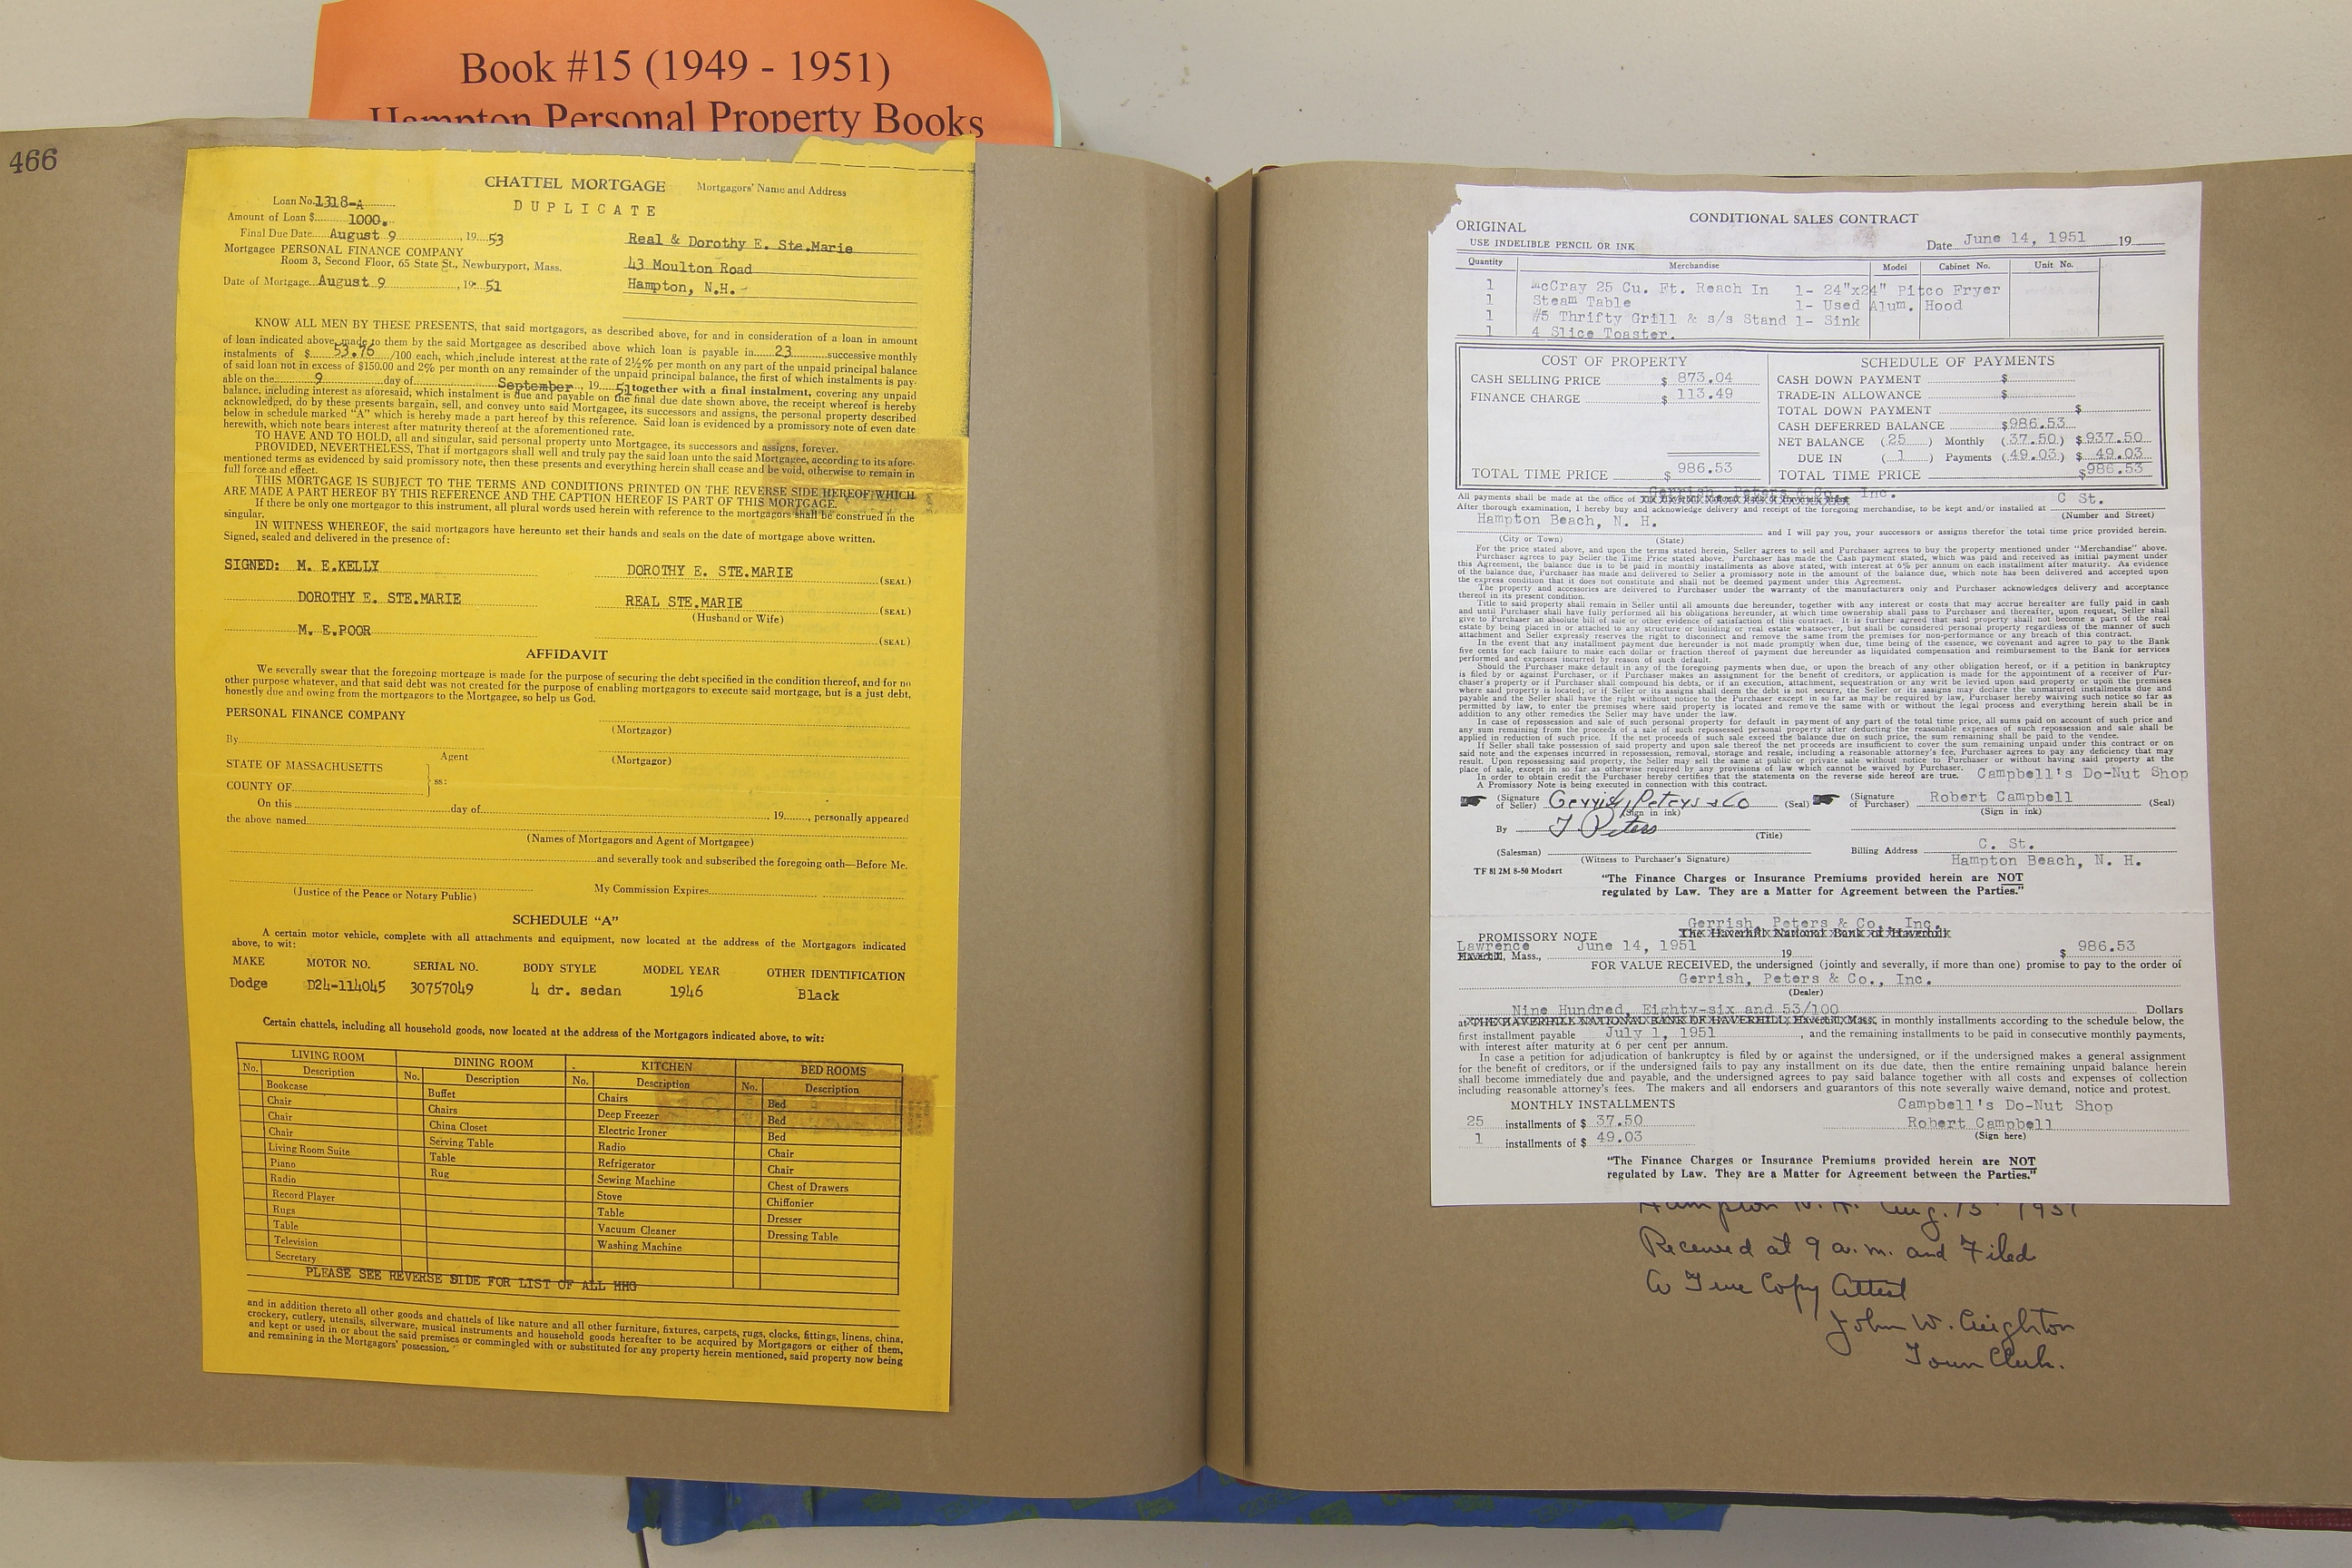 Book #15 (1949 - 1951)
Hampton Personal Property Books
466
CHATTEL MORTGAGE
DUPLICATE
Mortgagors' Name and Address
Loan No. 1318-A
Amount of Loan $ 1000.
Final Due Date August 9, 19 53
Mortgagee PERSONAL FINANCE COMPANY
Room 3, Second Floor, 65 State St., Newburyport, Mass.
Date of Mortgage August 9, 19 51
Real & Dorothy E. Ste.Marie
43 Moulton Road
Hampton, N.H.
KNOW ALL MEN BY THESE PRESENTS, that said mortgagors, as described above, for and in consideration of a loan in amount
of loan indicated above, made to them by the said Mortgagee as described above which loan is payable in 23 successive monthly
instalments of $ 53.76 /100 each, which include interest at the rate of 2½% per month on any part of the unpaid principal balance
of said loan not in excess of $150.00 and 2% per month on any remainder of the unpaid principal balance, the first of which instalments is pay-
able on the 9 day of September, 19 51 together with a final instalment, covering any unpaid
balance, including interest as aforesaid, which instalment is due and payable on the final due date shown above, the receipt whereof is hereby
acknowledged, do by these presents bargain, sell, and convey unto said Mortgagee, its successors and assigns, the personal property described
below in schedule marked "A" which is hereby made a part hereof by this reference. Said loan is evidenced by a promissory note of even date
herewith, which note bears interest after maturity thereof at the aforementioned rate.
TO HAVE AND TO HOLD, all and singular, said personal property unto Mortgagee, its successors and assigns, forever.
PROVIDED, NEVERTHELESS, That if mortgagors shall well and truly pay the said loan unto the said Mortgagee, according to its afore-
mentioned terms as evidenced by said promissory note, then these presents and everything herein shall cease and be void, otherwise to remain in
full force and effect.
THIS MORTGAGE IS SUBJECT TO THE TERMS AND CONDITIONS PRINTED ON THE REVERSE SIDE HEREOF WHICH
ARE MADE A PART HEREOF BY THIS REFERENCE AND THE CAPTION HEREOF IS PART OF THIS MORTGAGE.
If there be only one mortgagor to this instrument, all plural words used herein with reference to the mortgagors shall be construed in the
singular.
IN WITNESS WHEREOF, the said mortgagors have hereunto set their hands and seals on the date of mortgage above written.
Signed, sealed and delivered in the presence of:
SIGNED: M. E.KELLY
DOROTHY E. STE.MARIE (SEAL)
DOROTHY E. STE.MARIE
REAL STE.MARIE (SEAL)
(Husband or Wife)
M. E.POOR
(SEAL)
AFFIDAVIT
We severally swear that the foregoing mortgage is made for the purpose of securing the debt specified in the condition thereof, and for no
other purpose whatever, and that said debt was not created for the purpose of enabling mortgagors to execute said mortgage, but is a just debt,
honestly due and owing from the mortgagors to the Mortgagee, so help us God.
PERSONAL FINANCE COMPANY
(Mortgagor)
By
Agent
(Mortgagor)
STATE OF MASSACHUSETTS
ss:
COUNTY OF
On this day of 19 , personally appeared
the above named
(Names of Mortgagors and Agent of Mortgagee)
and severally took and subscribed the foregoing oath—Before Me.
(Justice of the Peace or Notary Public)
My Commission Expires
SCHEDULE "A"
A certain motor vehicle, complete with all attachments and equipment, now located at the address of the Mortgagors indicated
above, to wit:
MAKE MOTOR NO. SERIAL NO. BODY STYLE MODEL YEAR OTHER IDENTIFICATION
Dodge D24-114045 30757049 4 dr. sedan 1946 Black
Certain chattels, including all household goods, now located at the address of the Mortgagors indicated above, to wit:
LIVING ROOM DINING ROOM KITCHEN BED ROOMS
No. Description No. Description No. Description No. Description
Bookcase Buffet Chairs Bed
Chair Chairs Deep Freezer Bed
Chair China Closet Electric Ironer Bed
Chair Serving Table Radio Chair
Living Room Suite Table Refrigerator Chair
Piano Rug Sewing Machine Chest of Drawers
Radio Stove Chiffonier
Record Player Table Dresser
Rugs Vacuum Cleaner Dressing Table
Table Washing Machine
Television
Secretary
PLEASE SEE REVERSE SIDE FOR LIST OF ALL HHG
and in addition thereto all other goods and chattels of like nature and all other furniture, fixtures, carpets, rugs, clocks, fittings, linens, china,
crockery, cutlery, utensils, silverware, musical instruments and household goods hereafter to be acquired by Mortgagors or either of them,
and kept or used in or about the said premises or commingled with or substituted for any property herein mentioned, said property now being
and remaining in the Mortgagors' possession.
ORIGINAL
CONDITIONAL SALES CONTRACT
USE INDELIBLE PENCIL OR INK
Date June 14, 1951 19
Quantity Merchandise Model Cabinet No. Unit No.
1 McCray 25 Cu. Ft. Reach In 1- 24"x24" Pitco Fryer
1 Steam Table 1- Used Alum. Hood
1 #5 Thrifty Grill & s/s Stand 1- Sink
1 4 Slice Toaster.
COST OF PROPERTY
CASH SELLING PRICE $ 873.04
FINANCE CHARGE $ 113.49
TOTAL TIME PRICE $ 986.53
SCHEDULE OF PAYMENTS
CASH DOWN PAYMENT $
TRADE-IN ALLOWANCE $
TOTAL DOWN PAYMENT $
CASH DEFERRED BALANCE $986.53
NET BALANCE (25) Monthly (37.50) $937.50
DUE IN (1) Payments (49.03) $ 49.03
TOTAL TIME PRICE $986.53
All payments shall be made at the office of Gerrish, Peters & Co., Inc. The Haverhill National Bank of Haverhill, Mass.
After thorough examination, I hereby buy and acknowledge delivery and receipt of the foregoing merchandise, to be kept and/or installed at C St.
(Number and Street)
Hampton Beach, N. H. and I will pay you, your successors or assigns therefor the total time price provided herein.
(City or Town) (State)
For the price stated above, and upon the terms stated herein, Seller agrees to sell and Purchaser agrees to buy the property mentioned under "Merchandise" above.
Purchaser agrees to pay Seller the Time Price stated above. Purchaser has made the Cash payment stated, which was paid and received as initial payment under
this Agreement, the balance due is to be paid in monthly installments as above stated, with interest at 6% per annum on each installment after maturity. As evidence
of the balance due, Purchaser has made and delivered to Seller a promissory note in the amount of the balance due, which note has been delivered and accepted upon
the express condition that it does not constitute and shall not be deemed payment under this Agreement.
The property and accessories are delivered to Purchaser under the warranty of the manufacturers only and Purchaser acknowledges delivery and acceptance
thereof in its present condition.
Title to said property shall remain in Seller until all amounts due hereunder, together with any interest or costs that may accrue hereafter are fully paid in cash
and until Purchaser shall have fully performed all his obligations hereunder, at which time ownership shall pass to Purchaser and thereafter, upon request, Seller shall
give to Purchaser an absolute bill of sale or other evidence of satisfaction of this contract. It is further agreed that said property shall not become a part of the real
estate by being placed in or attached to any structure or building or real estate whatsoever, but shall be considered personal property regardless of the manner of such
attachment and Seller expressly reserves the right to disconnect and remove the same from the premises for non-performance or any breach of this contract.
In the event that any installment payment due hereunder is not made promptly when due, time being of the essence, we covenant and agree to pay to the Bank
five cents for each failure to make each dollar or fraction thereof of payment due hereunder as liquidated compensation and reimbursement to the Bank for services
performed and expenses incurred by reason of such default.
Should the Purchaser make default in any of the foregoing payments when due, or upon the breach of any other obligation hereof, or if a petition in bankruptcy
is filed by or against Purchaser, or if Purchaser makes an assignment for the benefit of creditors, or application is made for the appointment of a receiver of Pur-
chaser's property or if Purchaser shall compound his debts, or if an execution, attachment, sequestration or any writ be levied upon said property or upon the premises
where said property is located; or if Seller or its assigns shall deem the debt is not secure, the Seller or its assigns may declare the unmatured installments due and
payable and the Seller shall have the right without notice to the Purchaser except in so far as may be required by law, Purchaser hereby waiving such notice so far as
permitted by law, to enter the premises where said property is located and remove the same with or without the legal process and everything herein shall be in
addition to any other remedies the Seller may have under the law.
In case of repossession and sale of such personal property for default in payment of any part of the total time price, all sums paid on account of such price and
any sum remaining from the proceeds of a sale of such repossessed personal property after deducting the reasonable expenses of such repossession and sale shall be
applied in reduction of such price. If the net proceeds of such sale exceed the balance due on such price, the sum remaining shall be paid to the vendee.
If Seller shall take possession of said property and upon sale thereof the net proceeds are insufficient to cover the sum remaining unpaid under this contract or on
said note and the expenses incurred in repossession, removal, storage and resale, including a reasonable attorney's fee, Purchaser agrees to pay any deficiency that may
result. Upon repossessing said property, the Seller may sell the same at public or private sale without notice to Purchaser or without having said property at the
place of sale, except in so far as otherwise required by any provisions of law which cannot be waived by Purchaser.
In order to obtain credit the Purchaser hereby certifies that the statements on the reverse side hereof are true. Campbell's Do-Nut Shop
A Promissory Note is being executed in connection with this contract.
(Signature of Seller) Gerrish, Peters & Co (Seal) (Signature of Purchaser) Robert Campbell (Seal)
(Sign in ink) (Sign in ink)
By J Peters (Title)
(Salesman) Billing Address C. St.
(Witness to Purchaser's Signature) Hampton Beach, N. H.
TF 81 2M 8-50 Modart
"The Finance Charges or Insurance Premiums provided herein are NOT
regulated by Law. They are a Matter for Agreement between the Parties."
Gerrish, Peters & Co., Inc.
PROMISSORY NOTE The Haverhill National Bank of Haverhill
Lawrence June 14, 1951 $ 986.53
Haverhill, Mass., 19
FOR VALUE RECEIVED, the undersigned (jointly and severally, if more than one) promise to pay to the order of
Gerrish, Peters & Co., Inc.
(Dealer)
Nine Hundred, Eighty-six and 53/100 Dollars
at THE HAVERHILL NATIONAL BANK OF HAVERHILL, Haverhill, Mass., in monthly installments according to the schedule below, the
first installment payable July 1, 1951, and the remaining installments to be paid in consecutive monthly payments,
with interest after maturity at 6 per cent per annum.
In case a petition for adjudication of bankruptcy is filed by or against the undersigned, or if the undersigned makes a general assignment
for the benefit of creditors, or if the undersigned fails to pay any installment on its due date, then the entire remaining unpaid balance herein
shall become immediately due and payable, and the undersigned agrees to pay said balance together with all costs and expenses of collection
including reasonable attorney's fees. The makers and all endorsers and guarantors of this note severally waive demand, notice and protest.
MONTHLY INSTALLMENTS
Campbell's Do-Nut Shop
25 installments of $ 37.50
Robert Campbell
(Sign here)
1 installments of $ 49.03
"The Finance Charges or Insurance Premiums provided herein are NOT
regulated by Law. They are a Matter for Agreement between the Parties."
Hampton N.H. Aug. 15 1951
Received at 9 a.m. and Filed
A True Copy Attest
John W. Creighton
Town Clerk.